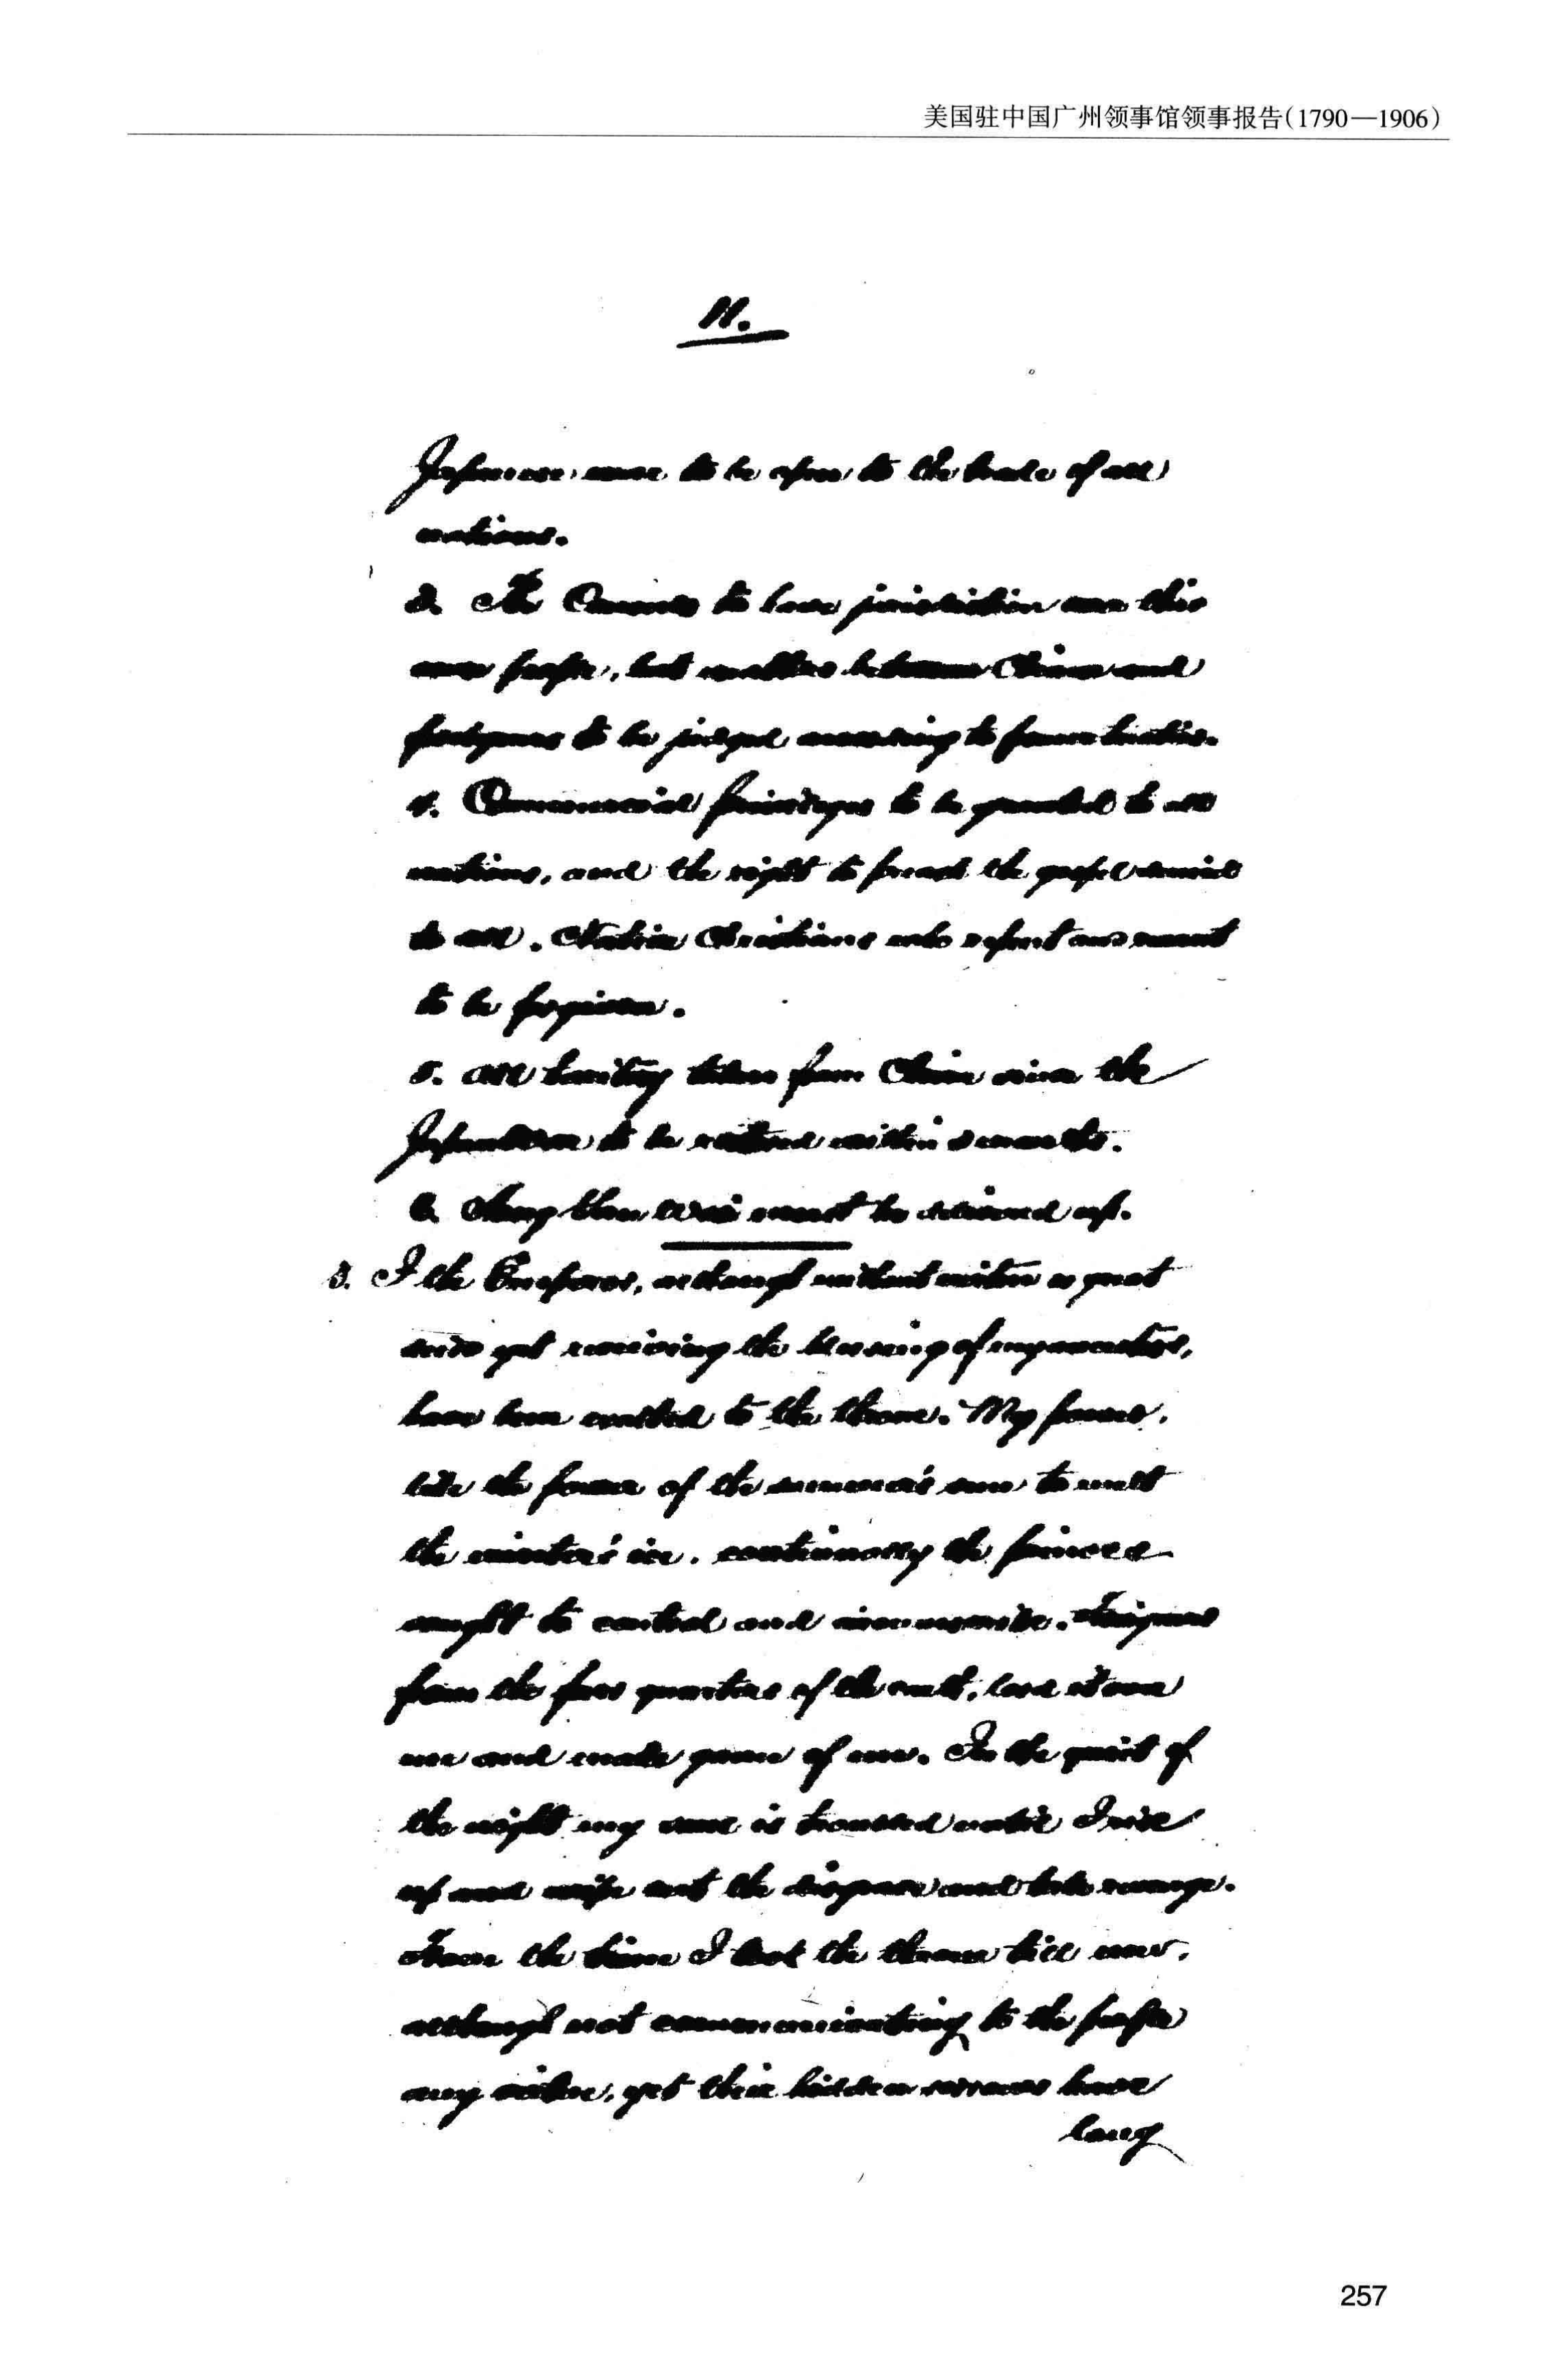 美国驻中国广州领事馆领事报告(1790—1906)
11.
Japanese war to be open to the trade of all
nations.
3. The Consuls to have jurisdiction over this
own people, but matters between China and
foreigners to be judged according to former treaties.
4. Commercial privileges to be granted to all
nations, and the right to preach the gospel
to all. Native Christians who repent
to be forgiven.
5. All territory taken from China since the
to be restored within 3 months.
6. must be delivered up.
3. I the Emperor, although without virtue a great
yet receiving the blessing of my ancestors,
have been exalted to the throne. My power,
like the power of the summer's sun to melt
the winter's ice. continually the princes
sought to control and. Foreigners
from the four quarters of the earth,
me and made game of me. In the quiet of
the night my soul is troubled until I rise
up and wipe out the disgrace and take revenge.
From the time I took the throne till now,
although not communicating to the people
any virtue, yet their hidden sorrows have
long
257